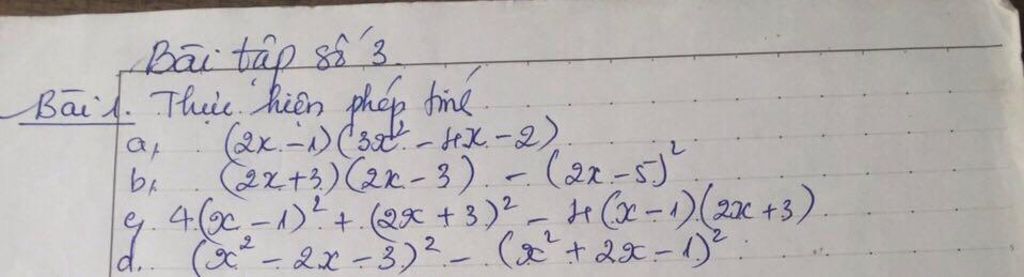 Bài tập số 3.
Bài 1. Thực hiện phép tính
a, (2x - 1)(3x² - 4x - 2)
b, (2x + 3)(2x - 3) - (2x - 5)²
c, 4(x - 1)² + (2x + 3)² - 4(x - 1)(2x + 3)
d. (x² - 2x - 3)² - (x² + 2x - 1)²